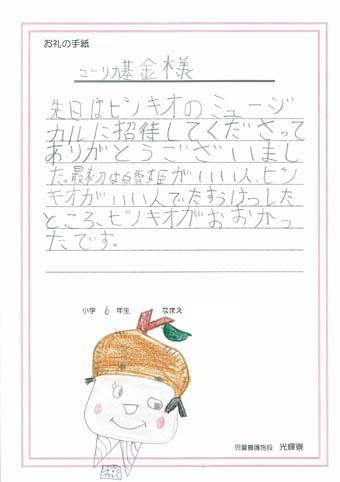 お礼の手紙
ユーリカ基金様
先日はピンキオのミュージ
カルに招待してくださって
ありがとうございまし
た。最初は白雪姫がいい人、ピン
キオがいい人でたすうけつした
ところ、ピンキオがおおかっ
たです。
小学 6 年生 なまえ
児童養護施設 光輝寮